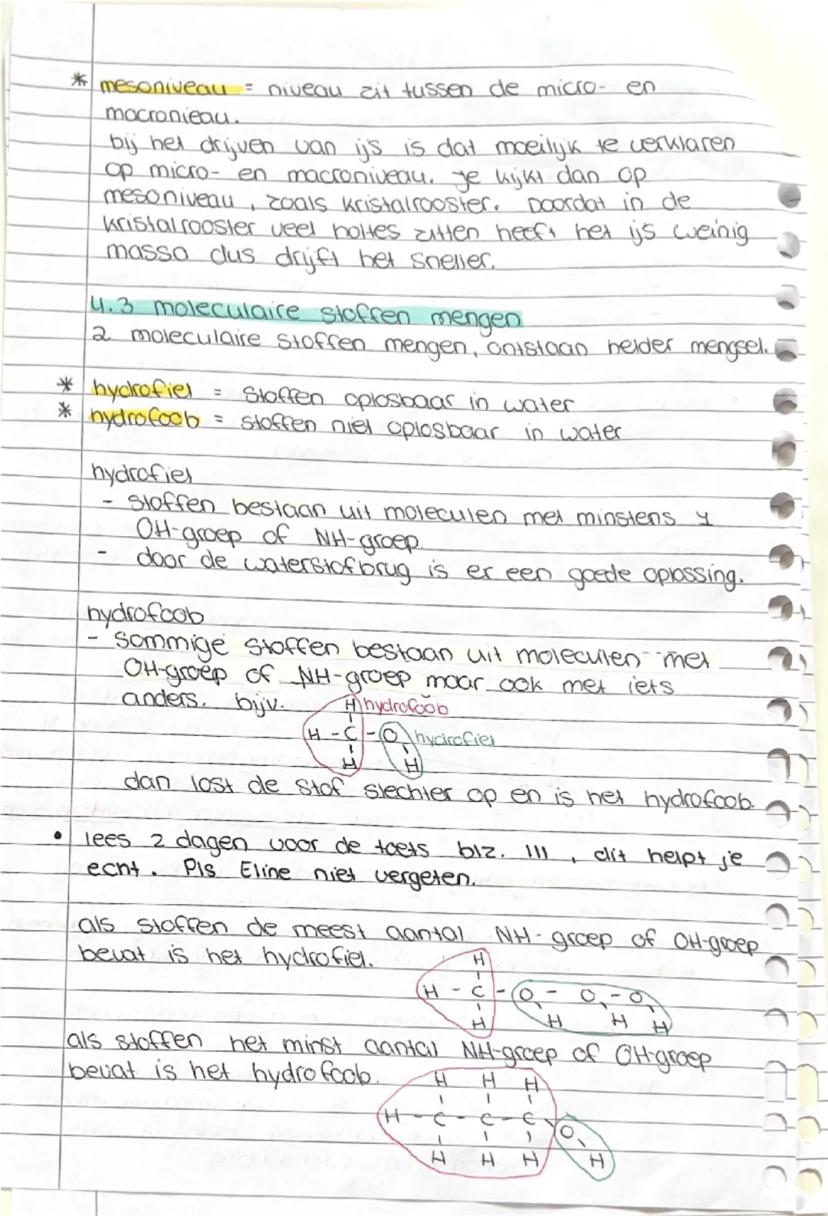 * mesoniveau = niveau zit tussen de micro- en
macronieau.
bij het drijven van ijs is dat moeilijk te verklaren
op micro- en macroniveau. je kijkt dan op
mesoniveau, zoals kristalrooster. Doordat in de
kristalrooster veel holtes zitten heeft het ijs weinig
massa dus drijft het sneller.
4.3 moleculaire stoffen mengen
2 moleculaire stoffen mengen, ontstaan helder mengsel.
* hydrofiel = stoffen oplosbaar in water
* hydrofoob = stoffen niet oplosbaar in water
hydrofiel
- stoffen bestaan uit moleculen met minstens 1
OH-groep of NH-groep.
- door de waterstofbrug is er een goede oplossing.
hydrofoob
- sommige stoffen bestaan uit moleculen met
OH-groep of NH-groep maar ook met iets
anders. bijv.
H hydrofoob
H - C - O hydrofiel
H H
dan lost de stof slechter op en is het hydrofoob.
• lees 2 dagen voor de toets blz. 111, dit helpt je
echt. Pls Eline niet vergeten.
als stoffen de meest aantal NH-groep of OH-groep
bevat is het hydrofiel.
H
H - C - O - O - O
H H H H
als stoffen het minst aantal NH-groep of OH-groep
bevat is het hydrofoob.
H H H
H - C - C - C O
H H H H